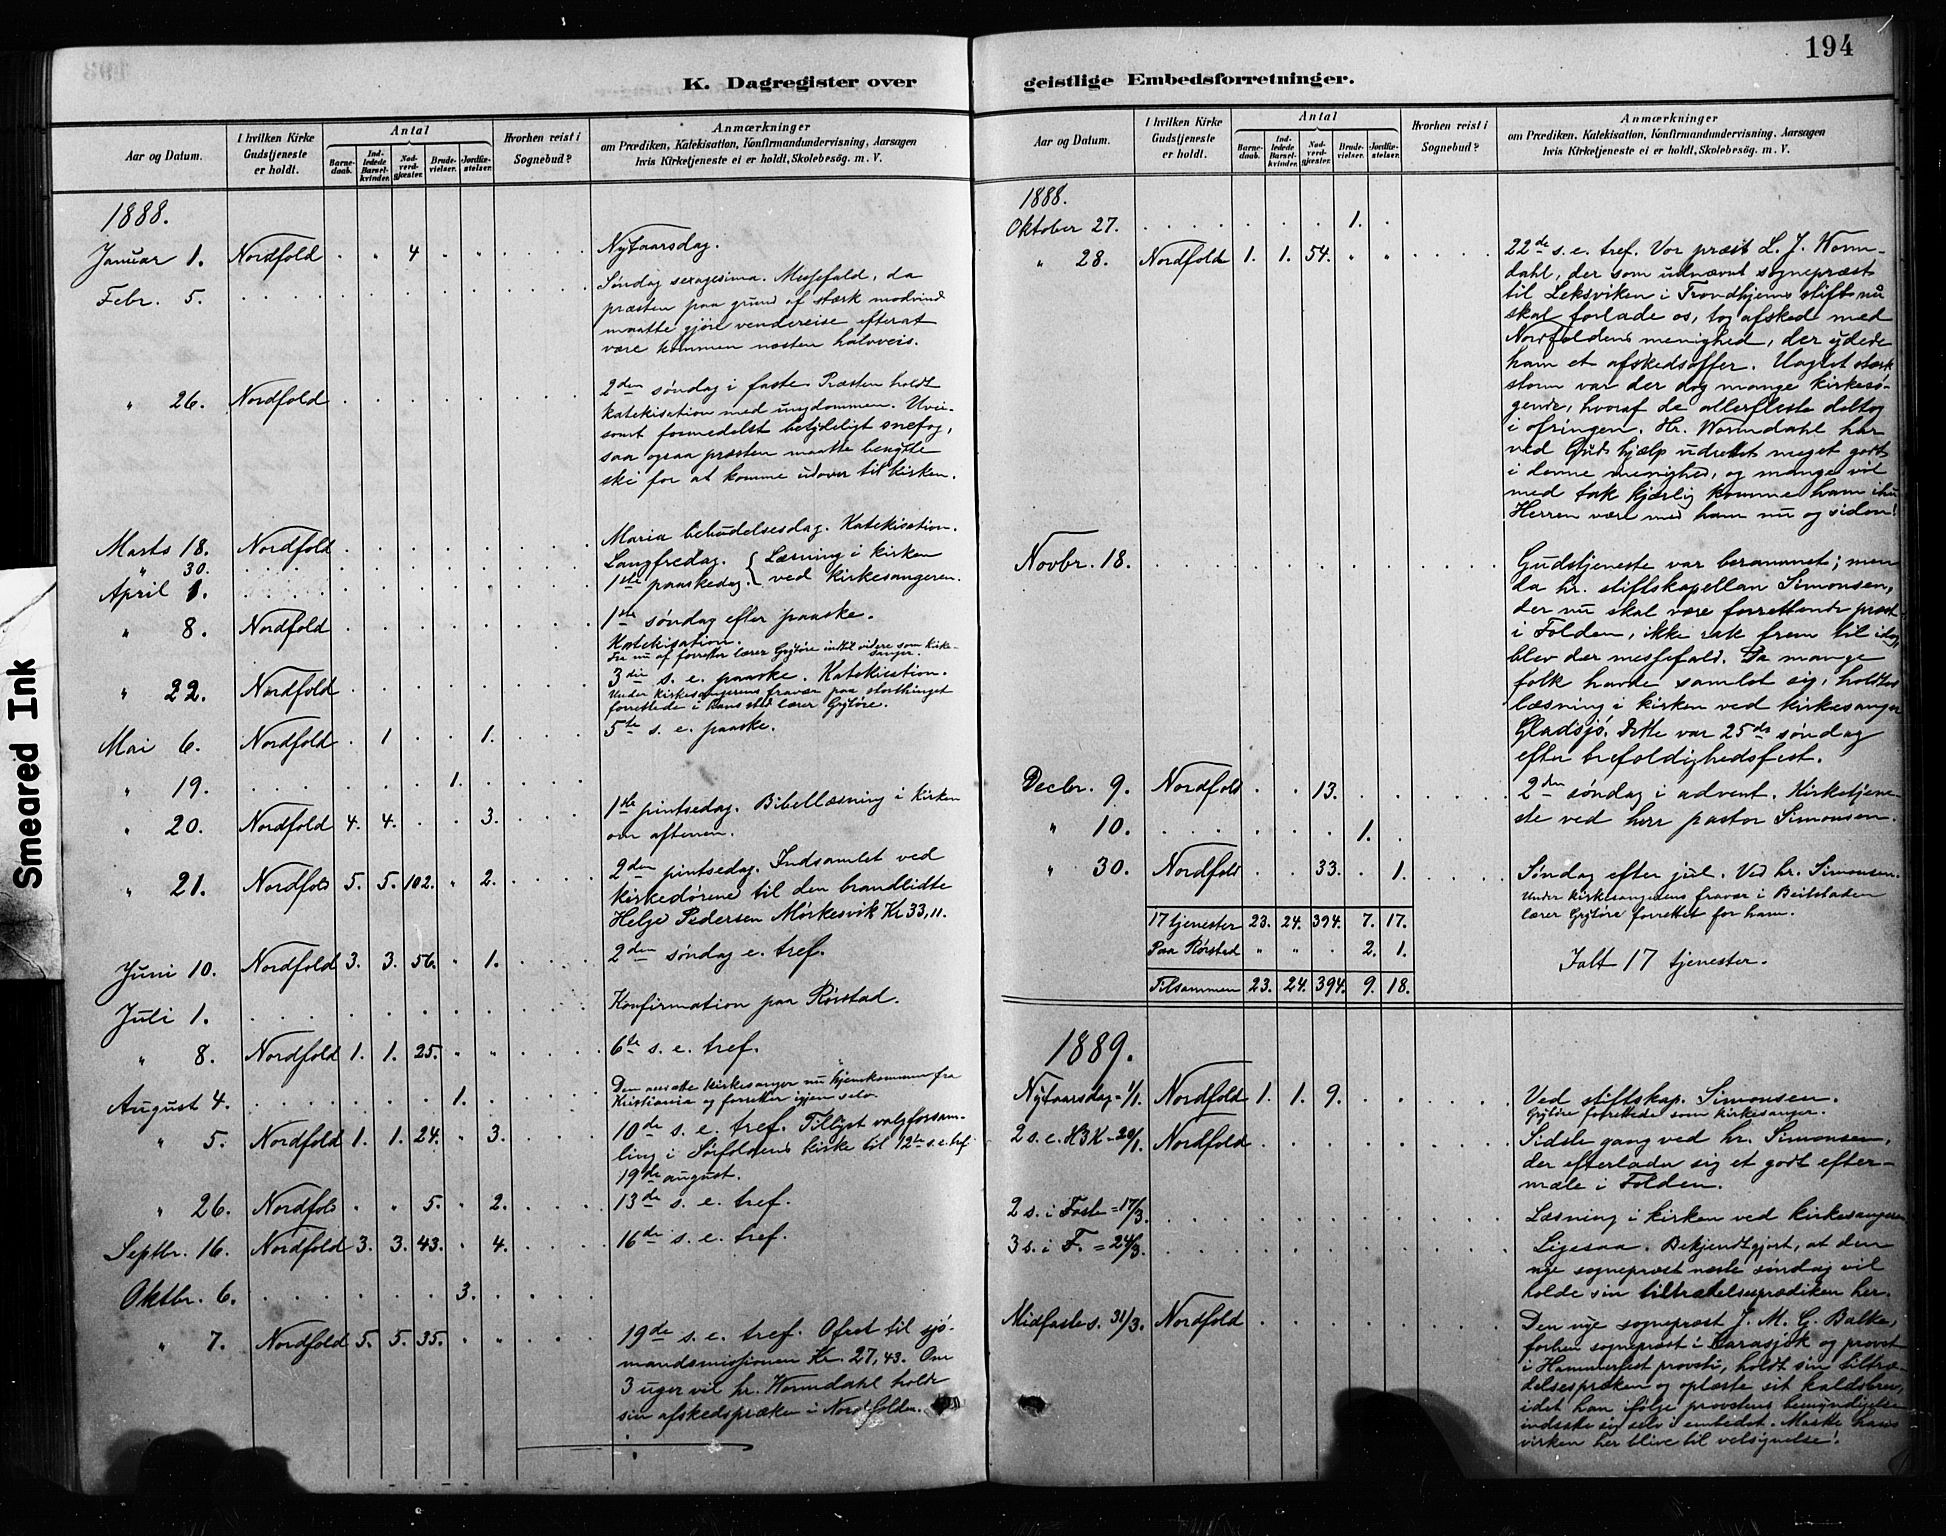 194
K. Dagregister over
geistlige Embedsforretninger.
Smeared Ink
Aar og Datum.
I hvilken Kirke Gudstjeneste er holdt.
Antal
Barnedaab.
Indledede Barselkvinder.
Nadverdgjæster.
Brudevielser.
Jordfæstelser.
Hvorhen reist i Sognebud?
Anmærkninger
om Prædiken, Katekisation, Konfirmandundervisning, Aarsagen
hvis Kirketjeneste ei er holdt, Skolebesøg. m. V.
1888.
Januar 1. Nordfold . „ 4 „ „ Nytaarsdag.
Febr. 5. Søndag sexagesima. Messefald, da
præsten paa grund af stærk modvind
maatte gjøre vendereise efterat
være kommen næsten halvveis.
„ 26. Nordfold 2den søndag i faste. Præsten holdt
katekisation med ungdommen. Uvei-
somt formedelst betydeligt snefog,
saa ogsaa præsten maatte benytte
ski for at komme udover til kirken.
Marts 18. Nordfold Maria bebudelsesdag. Katekisation.
„ 30. Langfredag. { Læsning i kirken
April 1. 1ste paaskedag. { ved kirkesangeren.
„ 8. Nordfold 1ste søndag efter paaske.
Katekisation.
Fra nu af forretter lærer Grytøre indtil videre som kirke-
sanger.
„ 22. Nordfold 3die s. e. paaske. Katekisation.
Under kirkesangerens fravær paa storthinget
forrettede i hans sted lærer Grytøre.
Mai 6. Nordfold . 1 . . 1. 5te s. e. paaske.
„ 19. 1.
„ 20. Nordfold 4. 4. . . 3. 1ste pintsedag. Bibellæsning i kirken
om aftenen.
„ 21. Nordfold 5. 5. 102. „ 2. 2den pintsedag. Indsamlet ved
kirkedørene til den brandlidte
Helge Pedersen Mørkesvik Kr 33,11.
Juni 10. Nordfold 3. 3. 56. „ 1. 2den søndag e. tref.
Juli 1. Konfirmation paa Rørstad.
„ 8. Nordfold 1. 1. 25. „ „ 6te s. e. tref.
August 4. 1. Den ansatte kirkesanger nu hjemkommen fra
Kristiania og forretter igjen selv.
„ 5. Nordfold 1. 1. 24. „ 3. 10de s. e. tref. Tillyst valgforsam-
ling i Sørfoldens kirke til 12te s. e. tref.
19de august.
„ 26. Nordfold „ „ 5. „ 2. 13de s. e. tref.
Septbr. 16. Nordfold 3. 3. 43. „ 4. 16de s. e. tref.
Oktbr. 6. 3.
„ 7. Nordfold 5. 5. 35. „ „ 19de s. e. tref. Ofret til sjø-
mandsmissionen Kr. 27,43. Om
3 uger vil hr. Wormdahl holde
sin afskedspræken i Nordfolden.
Aar og Datum.
I hvilken Kirke Gudstjeneste er holdt.
Antal
Barnedaab.
Indledede Barselkvinder.
Nadverdgjæster.
Brudevielser.
Jordfæstelser.
Hvorhen reist i Sognebud?
Anmærkninger
om Prædiken, Katekisation, Konfirmandundervisning, Aarsagen
hvis Kirketjeneste ei er holdt, Skolebesøg. m. V.
1888.
Oktober 27. 1.
„ 28. Nordfold 1. 1. 54. „ „ 22de s. e. tref. Vor præst L. J. Worm-
dahl, der som udnævnt sognepræst
til Leksviken i Trondhjems stift nu
skal forlade os, tog afsked med
Nordfoldens menighed, der ydede
ham et afskedsoffer. Uagtet stærk
storm var der dog mange kirkesø-
gende, hvoraf de allerfleste deltog
i ofringen. Hr. Wormdahl har
ved Guds hjælp udrettet meget godt
i denne menighed, og mange vil
med tak kjærlig komme ham ihu.
Herren være med ham nu og siden!
Novbr. 18. Gudstjeneste var berammet; men
da hr. stiftskapellan Simonsen,
der nu skal være forrettende præst
i Folden, ikke rak frem til idag,
blev der messefald. Da mange
folk havde samlet sig, holdtes
læsning i kirken ved kirkesanger
Gladsjø. Dette var 25de søndag
efter trefoldighedsfest.
Decbr. 9. Nordfold . . 13. 2den søndag i advent. Kirketjene-
ste ved herr pastor Simonsen.
„ 10. 1.
„ 30. Nordfold . . 33. . 1. Søndag efter jul. Ved hr. Simonsen.
Under kirkesangerens fravær i Beitstaden
lærer Grytøre forrettet for ham.
17 tjenester 23. 24. 394. 7. 17.
Paa Rørstad „ „ . 2. 1.
Ialt 17 tjenester.
Tilsammen 23. 24. 394. 9. 18.
1889.
Nytaarsdag = 1/1. Nordfold 1. 1. 9. Ved stiftskap. Simonsen.
Grytøre forrettede som kirkesanger.
2 s. e. H3K = 20/1. Nordfold Sidste gang ved hr. Simonsen,
der efterlader sig et godt efter-
mæle i Folden.
2 s. i Faste = 17/3. Læsning i kirken ved kirkesangeren
3 s. i F. = 24/3. Ligesaa. Bekjendtgjort, at den
nye sognepræst næste søndag vil
holde sin tiltrædelsesprædiken her.
Midfaste s. 31/3. Nordfold Den nye sognepræst J. M. G. Balke,
forhen sognepræst i Karasjok og provst
i Hammerfest provsti, holdt sin tiltræ-
delsespræken og oplæste sit kaldsbrev,
idet han ifølge provstens bemyndigelse
indsatte sig selv i embedet. Maatte hans
virken her blive til velsignelse!